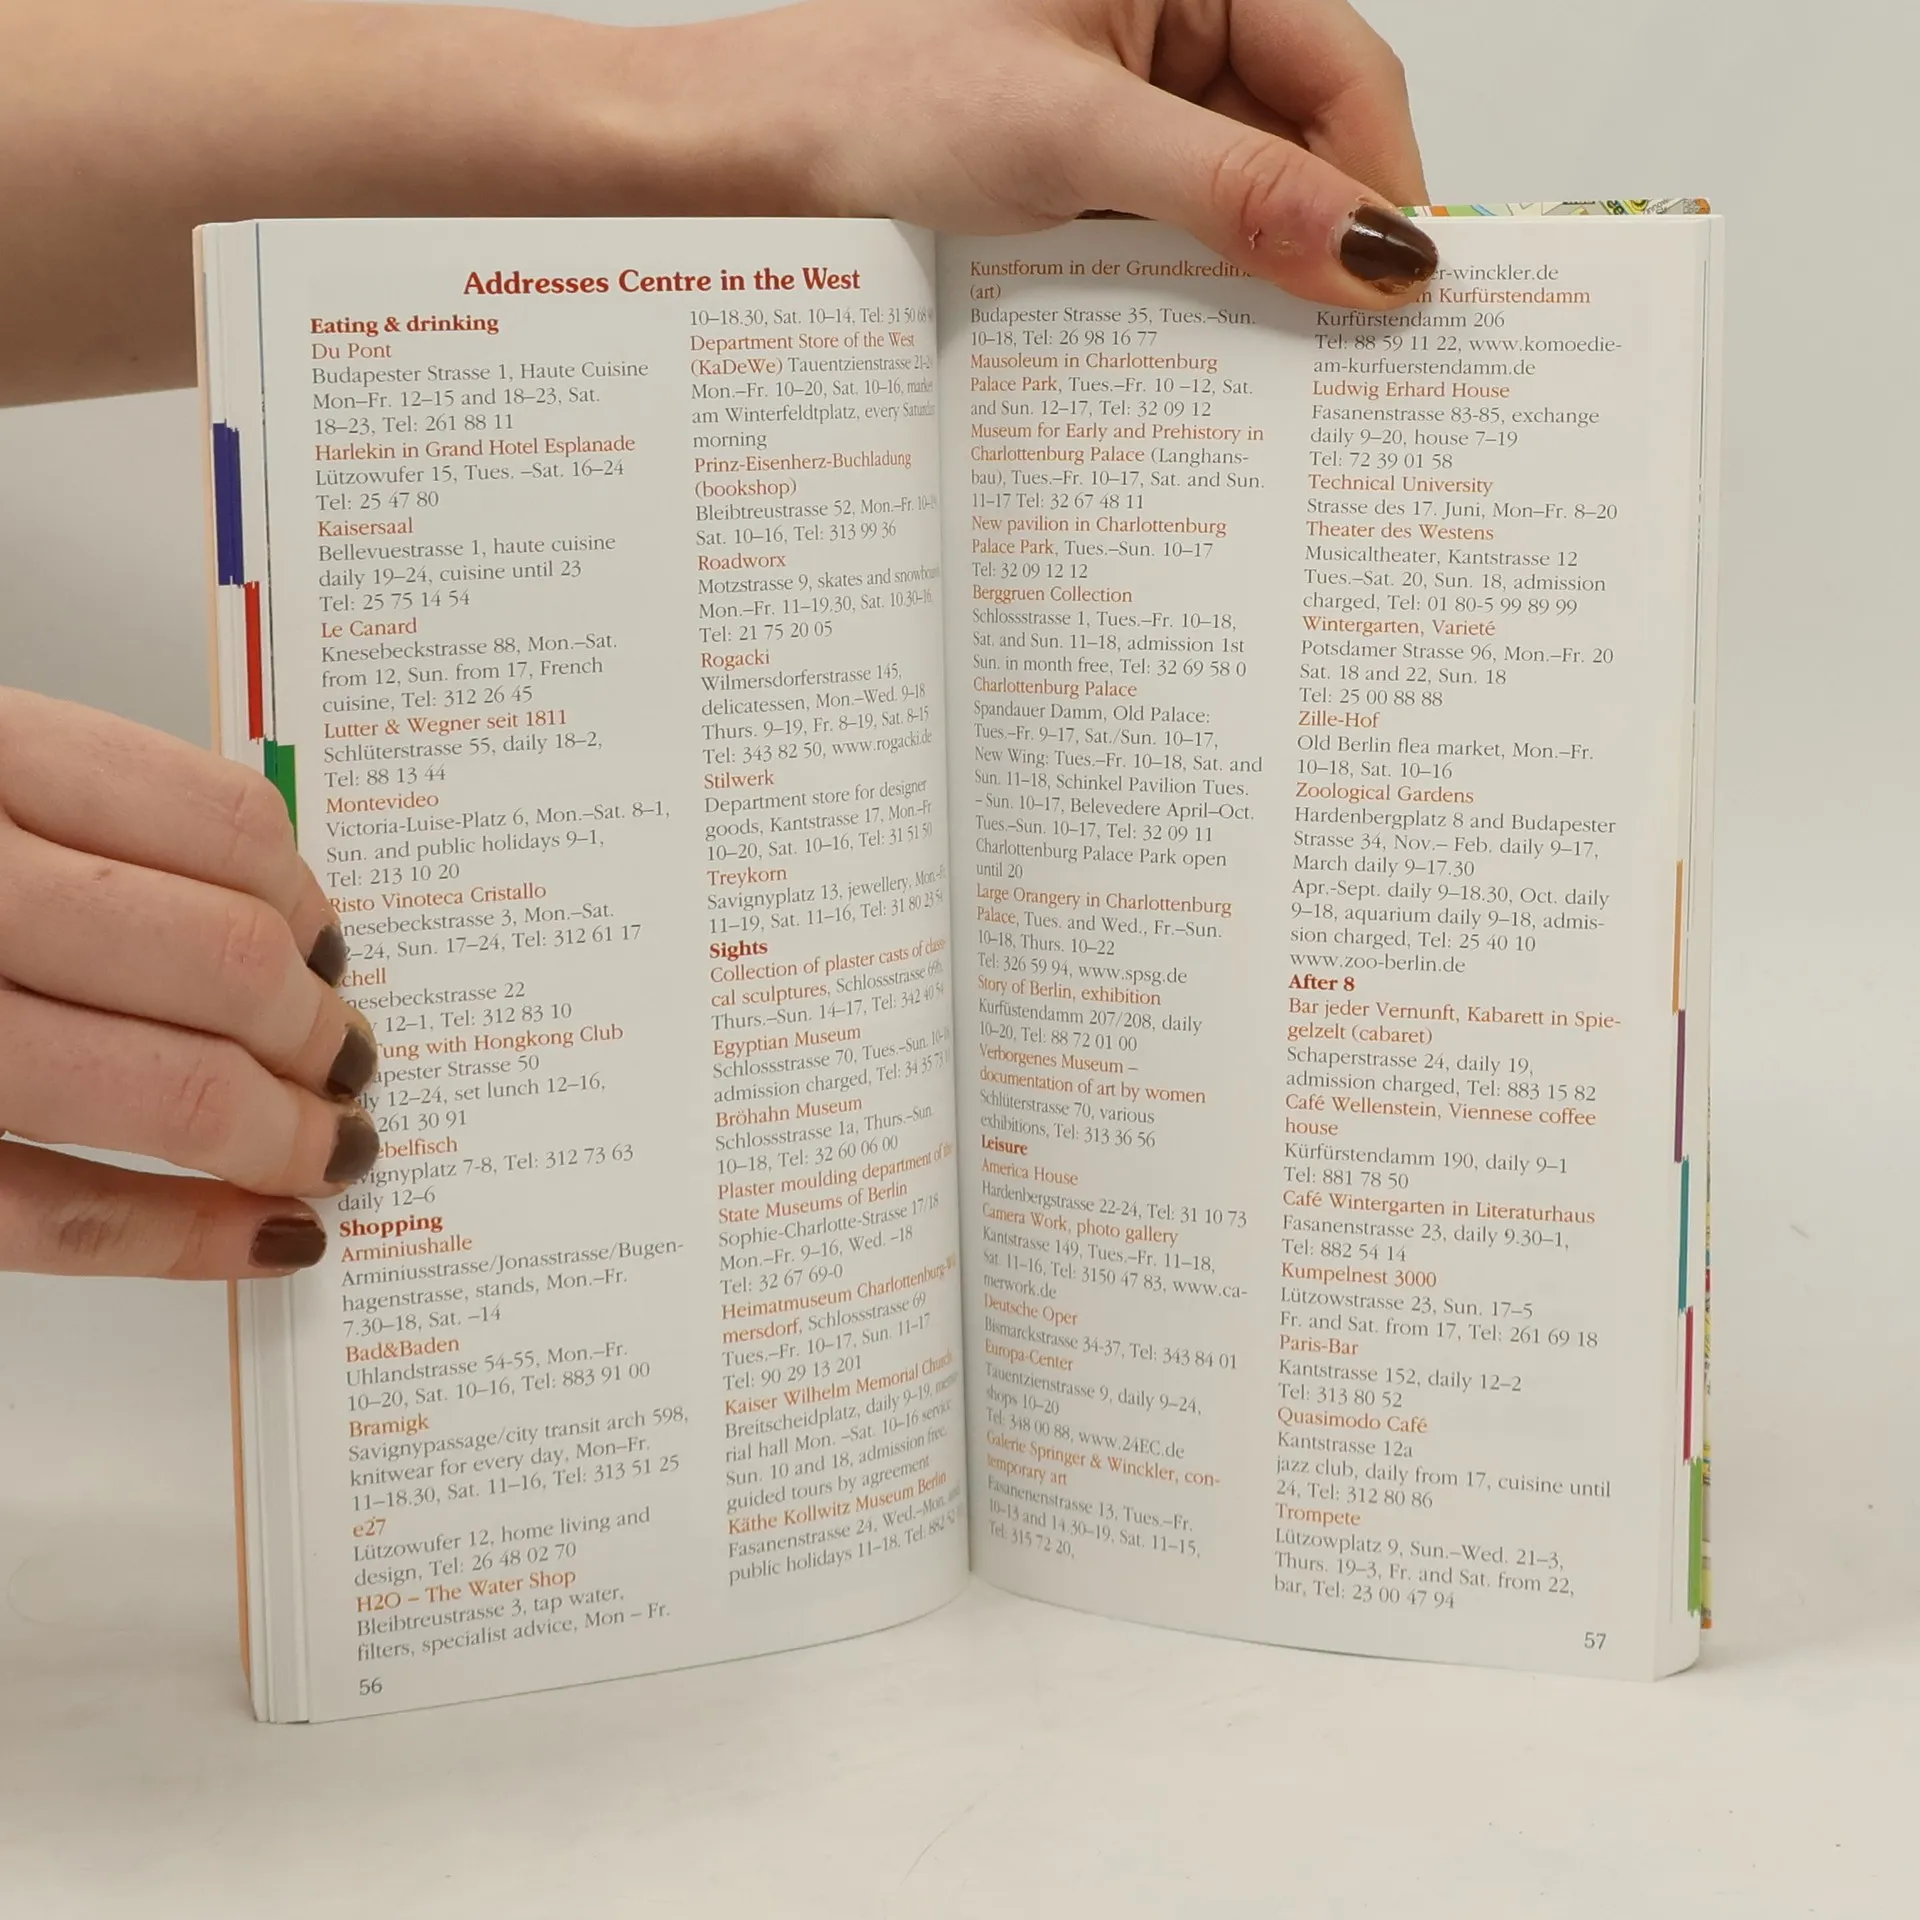 Addresses Centre in the West
Eating & drinking
Du Pont
Budapester Strasse 1, Haute Cuisine
Mon–Fr. 12–15 and 18–23, Sat.
18–23, Tel: 261 88 11
Harlekin in Grand Hotel Esplanade
Lützowufer 15, Tues. –Sat. 16–24
Tel: 25 47 80
Kaisersaal
Bellevuestrasse 1, haute cuisine
daily 19–24, cuisine until 23
Tel: 25 75 14 54
Le Canard
Knesebeckstrasse 88, Mon.–Sat.
from 12, Sun. from 17, French
cuisine, Tel: 312 26 45
Lutter & Wegner seit 1811
Schlüterstrasse 55, daily 18–2,
Tel: 88 13 44
Montevideo
Victoria-Luise-Platz 6, Mon.–Sat. 8–1,
Sun. and public holidays 9–1,
Tel: 213 10 20
Risto Vinoteca Cristallo
3, Mon.–Sat.
Sun. 17–24, Tel: 312 61 17
22
12–1, Tel: 312 83 10
with Hongkong Club
Strasse 50
12–24, set lunch 12–16,
261 30 91
7-8, Tel: 312 73 63
daily 12–6
Shopping
Arminiushalle
Arminiusstrasse/Jonasstrasse/Bugen-
hagenstrasse, stands, Mon.–Fr.
7.30–18, Sat. –14
Bad&Baden
Uhlandstrasse 54-55, Mon.–Fr.
10–20, Sat. 10–16, Tel: 883 91 00
Bramigk
Savignypassage/city transit arch 598,
knitwear for every day, Mon–Fr.
11–18.30, Sat. 11–16, Tel: 313 51 25
e27
Lützowufer 12, home living and
design, Tel: 26 48 02 70
H2O – The Water Shop
Bleibtreustrasse 3, tap water,
filters, specialist advice, Mon – Fr.
56
10–18.30, Sat. 10–14, Tel: 31 50
Department Store of the West
(KaDeWe) Tauentzienstrasse
Mon.–Fr. 10–20, Sat. 10–16,
am Winterfeldtplatz, every
morning
Prinz-Eisenherz-Buchladung
(bookshop)
Bleibtreustrasse 52, Mon.–Fr.
Sat. 10–16, Tel: 313 99 36
Roadworx
Motzstrasse 9, skates and
Mon.–Fr. 11–19.30, Sat. 10.30–16,
Tel: 21 75 20 05
Rogacki
Wilmersdorferstrasse 145,
delicatessen, Mon.–Wed. 9–18
Thurs. 9–19, Fr. 8–19, Sat. 8–15
Tel: 343 82 50, www.rogacki.de
Stilwerk
Department store for designer
goods, Kantstrasse 17, Mon.–Fr
10–20, Sat. 10–16, Tel: 31 51 50
Treykorn
Savignyplatz 13, jewellery,
11–19, Sat. 11–16, Tel: 31 80 23 54
Sights
Collection of plaster casts of
cal sculptures, Schlossstrasse
Thurs.–Sun. 14–17, Tel: 342 40 54
Egyptian Museum
Schlossstrasse 70, Tues.–Sun.
admission charged, Tel: 34 35
Bröhahn Museum
Schlossstrasse 1a, Thurs.–Sun.
10–18, Tel: 32 60 06 00
Plaster moulding department of the
State Museums of Berlin
Sophie-Charlotte-Strasse 17/18
Mon.–Fr. 9–16, Wed. –18
Tel: 32 67 69-0
Heimatmuseum
mersdorf, Schlossstrasse 69
Tues.–Fr. 10–17, Sun. 11–17
Tel: 90 29 13 201
Kaiser Wilhelm Memorial Church
Breitscheidplatz, daily 9–19,
rial hall Mon. –Sat. 10–16 service
Sun. 10 and 18, admission free,
guided tours by agreement
Käthe Kollwitz Museum Berlin
Fasanenstrasse 24, Wed.–Mon.
public holidays 11–18, Tel:
Kunstforum in der
(art)
Budapester Strasse 35, Tues.–Sun.
10–18, Tel: 26 98 16 77
Mausoleum in Charlottenburg
Palace Park, Tues.–Fr. 10 –12, Sat.
and Sun. 12–17, Tel: 32 09 12
Museum for Early and Prehistory in
Charlottenburg Palace (Langhans-
bau), Tues.–Fr. 10–17, Sat. and Sun.
11–17 Tel: 32 67 48 11
New pavilion in Charlottenburg
Palace Park, Tues.–Sun. 10–17
Tel: 32 09 12 12
Berggruen Collection
Schlossstrasse 1, Tues.–Fr. 10–18,
Sat. and Sun. 11–18, admission 1st
Sun. in month free, Tel: 32 69 58 0
Charlottenburg Palace
Spandauer Damm, Old Palace:
Tues.–Fr. 9–17, Sat./Sun. 10–17,
New Wing: Tues.–Fr. 10–18, Sat. and
Sun. 11–18, Schinkel Pavilion Tues.
– Sun. 10–17, Belevedere April–Oct.
Tues.–Sun. 10–17, Tel: 32 09 11
Charlottenburg Palace Park open
until 20
Large Orangery in Charlottenburg
Palace, Tues. and Wed., Fr.–Sun.
10–18, Thurs. 10–22
Tel: 326 59 94, www.spsg.de
Story of Berlin, exhibition
Kurfüstendamm 207/208, daily
10–20, Tel: 88 72 01 00
Verborgenes Museum –
documentation of art by women
Schlüterstrasse 70, various
exhibitions, Tel: 313 36 56
Leisure
America House
Hardenbergstrasse 22-24, Tel: 31 10 73
Camera Work, photo gallery
Kantstrasse 149, Tues.–Fr. 11–18,
Sat. 11–16, Tel: 3150 47 83, www.ca-
merwork.de
Deutsche Oper
Bismarckstrasse 34-37, Tel: 343 84 01
Europa-Center
Tauentzienstrasse 9, daily 9–24,
shops 10–20
Tel: 348 00 88, www.24EC.de
Galerie Springer & Winckler, con-
temporary art
Fasanenenstrasse 13, Tues.–Fr.
10–13 and 14.30–19, Sat. 11–15,
Tel: 315 72 20,
er-winckler.de
Kurfürstendamm
Kurfürstendamm 206
Tel: 88 59 11 22, www.komoedie-
am-kurfuerstendamm.de
Ludwig Erhard House
Fasanenstrasse 83-85, exchange
daily 9–20, house 7–19
Tel: 72 39 01 58
Technical University
Strasse des 17. Juni, Mon–Fr. 8–20
Theater des Westens
Musicaltheater, Kantstrasse 12
Tues.–Sat. 20, Sun. 18, admission
charged, Tel: 01 80-5 99 89 99
Wintergarten, Varieté
Potsdamer Strasse 96, Mon.–Fr. 20
Sat. 18 and 22, Sun. 18
Tel: 25 00 88 88
Zille-Hof
Old Berlin flea market, Mon.–Fr.
10–18, Sat. 10–16
Zoological Gardens
Hardenbergplatz 8 and Budapester
Strasse 34, Nov.– Feb. daily 9–17,
March daily 9–17.30
Apr.-Sept. daily 9–18.30, Oct. daily
9–18, aquarium daily 9–18, admis-
sion charged, Tel: 25 40 10
www.zoo-berlin.de
After 8
Bar jeder Vernunft, Kabarett in Spie-
gelzelt (cabaret)
Schaperstrasse 24, daily 19,
admission charged, Tel: 883 15 82
Café Wellenstein, Viennese coffee
house
Kürfürstendamm 190, daily 9–1
Tel: 881 78 50
Café Wintergarten in Literaturhaus
Fasanenstrasse 23, daily 9.30–1,
Tel: 882 54 14
Kumpelnest 3000
Lützowstrasse 23, Sun. 17–5
Fr. and Sat. from 17, Tel: 261 69 18
Paris-Bar
Kantstrasse 152, daily 12–2
Tel: 313 80 52
Quasimodo Café
Kantstrasse 12a
jazz club, daily from 17, cuisine until
24, Tel: 312 80 86
Trompete
Lützowplatz 9, Sun.–Wed. 21–3,
Thurs. 19–3, Fr. and Sat. from 22,
bar, Tel: 23 00 47 94
57